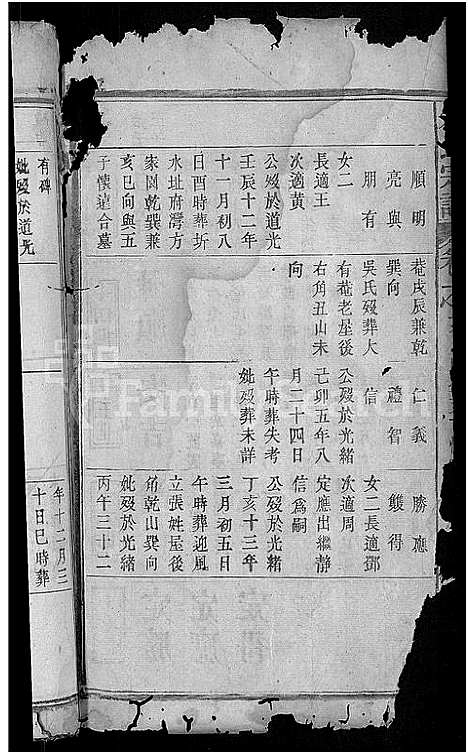 順明
亮與
朋有
女二
長適王
次適黃
公歿於道光
壬辰十二年
十一月初八
日酉時葬圻
水址府灣方
家園乾巽兼
亥巳向與五
子懷遠合墓
菴戌辰兼乾
巽向
吳氏歿葬大
有菴老屋後
右角丑山未
向
仁義
禮智
信
公歿於光緒
己卯五年八
月二十四日
午時葬失考
妣歿葬未詳
勝應
雙得
女二長適鄧
次適周
定應出繼靜
信爲嗣
公歿於光緒
丁亥十三年
三月初五日
午時葬迎風
立張姓屋後
乾山巽向
妣歿於光緒
丙午三十二
年十二月三
十日巳時葬
有碑
妣歿於道光